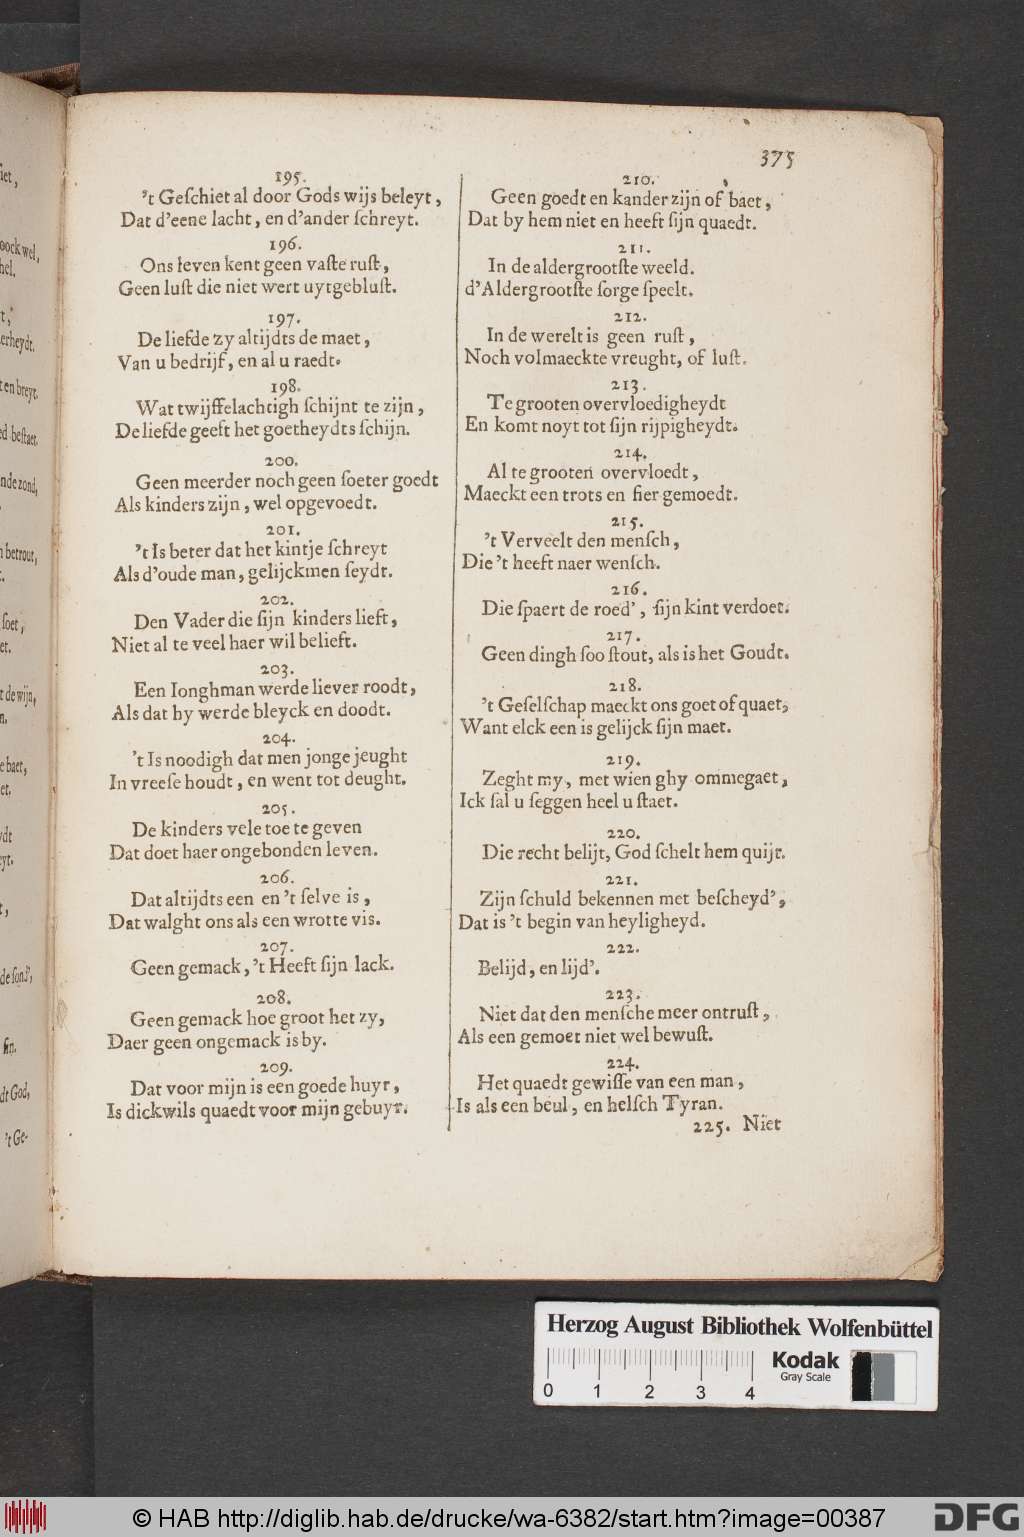 375
195.
’t Geſchiet al door Gods wijs beleyt,
Dat d’eene lacht, en d’ander ſchreyt.
196.
Ons leven kent geen vaſte ruſt,
Geen luſt die niet wert uytgebluſt.
197.
De liefde zy altijdts de maet,
Van u bedrijf, en al u raedt.
198.
Wat twijffelachtigh ſchijnt te zijn,
De liefde geeft het goetheydts ſchijn.
200.
Geen meerder noch geen ſoeter goedt
Als kinders zijn, wel opgevoedt.
201.
’t Is beter dat het kintje ſchreyt
Als d’oude man, gelijckmen ſeydt.
202.
Den Vader die ſijn kinders lieft,
Niet al te veel haer wil belieft.
203.
Een Ionghman werde liever roodt,
Als dat hy werde bleyck en doodt.
204.
’t Is noodigh dat men jonge jeught
In vreeſe houdt, en went tot deught.
205.
De kinders vele toe te geven
Dat doet haer ongebonden leven.
206.
Dat altijdts een en ’t ſelve is,
Dat walght ons als een wrotte vis.
207.
Geen gemack, ’t Heeft ſijn lack.
208.
Geen gemack hoe groot het zy,
Daer geen ongemack is by.
209.
Dat voor mijn is een goede huyr,
Is dickwils quaedt voor mijn gebuyr.
210.
Geen goedt en kander zijn of baet,
Dat by hem niet en heeft ſijn quaedt.
211.
In de aldergrootſte weeld.
d’Aldergrootſte ſorge ſpeelt.
212.
In de werelt is geen ruſt,
Noch volmaeckte vreught, of luſt.
213.
Te grooten overvloedigheydt
En komt noyt tot ſijn rijpigheydt.
214.
Al te grooten overvloedt,
Maeckt een trots en fier gemoedt.
215.
’t Verveelt den menſch,
Die ’t heeft naer wenſch.
216.
Die ſpaert de roed’, ſijn kint verdoet.
217.
Geen dingh ſoo ſtout, als is het Goudt.
218.
’t Geſelſchap maeckt ons goet of quaet,
Want elck een is gelijck ſijn maet.
219.
Zeght my, met wien ghy ommegaet,
Ick ſal u ſeggen heel u ſtaet.
220.
Die recht belijt, God ſchelt hem quijt.
221.
Zijn ſchuld bekennen met beſcheyd’,
Dat is ’t begin van heyligheyd.
222.
Belijd, en lijd’.
223.
Niet dat den menſche meer ontruſt,
Als een gemoet niet wel bewuſt.
224.
Het quaedt gewiſſe van een man,
Is als een beul, en helſch Tyran.
225. Niet
oock wel,
erheydt.
en breyt.
beſtaet.
nde zond,
betrout,
ſoet,
t de wijn,
baet,
de ſond’,
ſin.
dt God,
’t Ge-
Herzog August Bibliothek Wolfenbüttel
0 1 2 3 4
Kodak
Gray Scale
© HAB http://diglib.hab.de/drucke/wa-6382/start.htm?image=00387
DFG